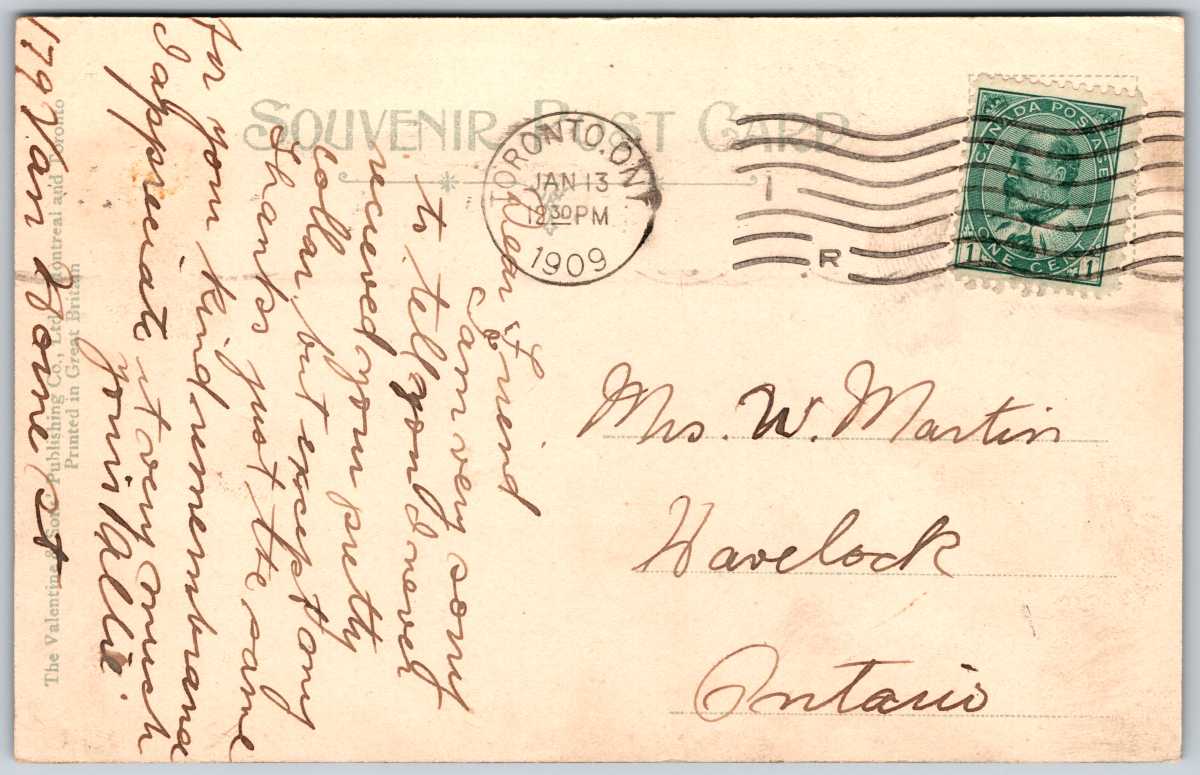 SOUVENIR POST CARD
TORONTO. ONT
JAN 13
12 30 PM
1909
1
R
CANADA POSTAGE
1 ONE CENT 1
Mrs. W. Martin
Havelock
Ontario
Dear Friend
I am very sorry
to tell you I never
recieved your pretty
collar, but except my
Thanks just the same
for your kind remembrance
I appreciate it very much
yours Vallie.
179 Van Horne St
The Valentine & Sons' Publishing Co., Ltd. Montreal and Toronto
Printed in Great Britain